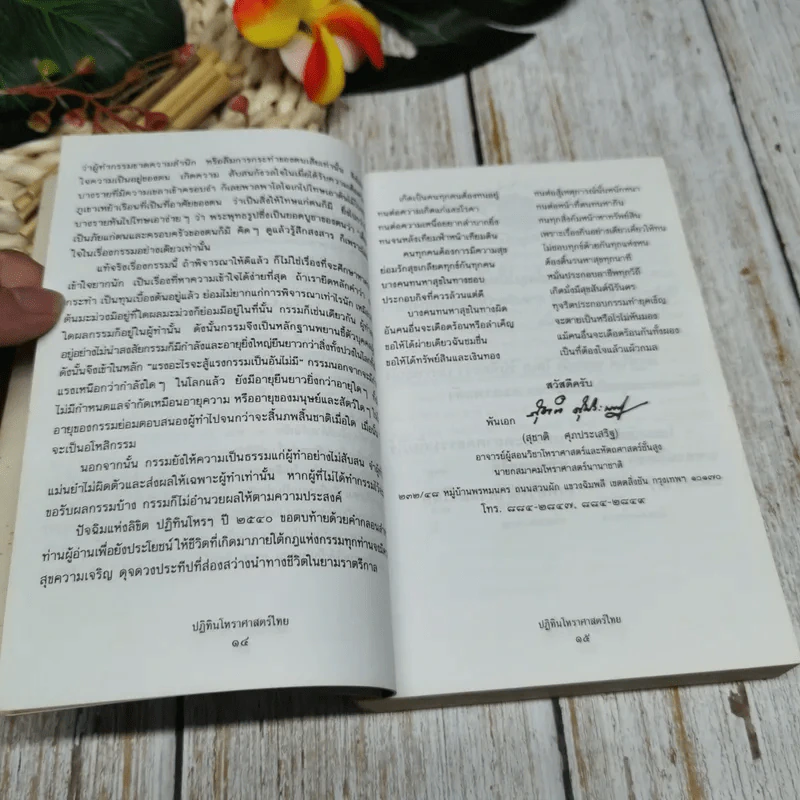 ว่าผู้ทำกรรมขาดความสำนึก หรือลืมการกระทำของตนเสียเท่านั้น
ใจความเป็นอยู่ของตน เกิดความ สับสนกังวลใจในเมื่อได้รับความเดือด
บางรายที่มีความเขลาเข้าครอบงำ ก็เลยพาลพาโลโจกเก็บโทษเอาดินน้ำ
ภูเขาเหย้าเรือนที่เป็นที่อาศัยของตน ว่าเป็นสิ่งให้โทษแก่ตนก็มี
บางรายหันไปโทษเอาง่าย ๆ ว่า พระพุทธรูปซึ่งเป็นยอดบูชาของตนว่า
เป็นภัยแก่ตนและครอบครัวของตนก็มี คิดๆ ดูแล้วรู้สึกสงสาร ก็เพราะ
ใจในเรื่องกรรมอย่างเดียวเท่านั้น
แท้จริงเรื่องกรรมนี้ ถ้าพิจารณาให้ดีแล้ว ก็ไม่ใช่เรื่องที่จะศึกษา
เข้าใจยากนัก เป็นเรื่องที่หาความเข้าใจได้ง่ายที่สุด ถ้าเรายึดหลักคำว่า
กระทำ เป็นทุนเบื้องต้นอยู่แล้ว ย่อมไม่ยากแก่การพิจารณาเท่าไรนัก
ต้นมะม่วงมีอยู่ที่ใดผลมะม่วงก็ย่อมมีอยู่ในที่นั้น กรรมก็เช่นเดียวกัน
ใดผลกรรมก็อยู่ในผู้ทำนั้น ดังนั้นกรรมจึงเป็นหลักฐานพยานชี้ตัวบุคคล
อยู่อย่างไม่น่าสงสัยกรรมก็มีกำลังและอายุยิ่งใหญ่ยืนยาวกว่าสิ่งทั้งปวงในโลก
ดังนั้นจึงเข้าในหลัก "แรงอะไรจะสู้แรงกรรมเป็นอันไม่มี" กรรมนอกจากจะมี
แรงเหนือกว่ากำลังใด ๆ ในโลกแล้ว ยังมีอายุยืนยาวยิ่งกว่าอายุใดๆ
ไม่มีกำหนดแลจำกัดเหมือนอายุความ หรืออายุของมนุษย์และสัตว์ใดๆ ใน
อายุของกรรมย่อมตอบสนองผู้ทำไปจนกว่าจะสิ้นภพสิ้นชาติเมื่อใด เมื่อนั้น
จะเป็นอโหสิกรรม
นอกจากนั้น กรรมยังให้ความเป็นธรรมแก่ผู้ทำอย่างไม่สับสน
แม่นยำไม่ผิดตัวและส่งผลให้เฉพาะผู้ทำเท่านั้น หากผู้ที่ไม่ได้ทำกรรมไว้
ขอรับผลกรรมบ้าง กรรมก็ไม่อำนวยผลให้ตามความประสงค์
ปัจฉิมแห่งลิขิต ปฏิทินโหรฯ ปี ๒๕๔๐ ขอตบท้ายด้วยคำกลอน
ท่านผู้อ่านเพื่อยังประโยชน์ ให้ชีวิตที่เกิดมาภายใต้กฎแห่งกรรมทุกท่านจง
สุขความเจริญ ดุจดวงประทีปที่ส่องสว่างนำทางชีวิตในยามราตรีกาล
ปฏิทินโหราศาสตร์ไทย
๑๔
เกิดเป็นคนทุกคนต้องทนอยู่ ทนต่อสู้เหตุการณ์นั้นหนักหนา
ทนต่อความเกิดแก่แลโรคา ทนต่อหน้าที่ตนทนหากิน
ทนต่อความเหนื่อยยากลำบากยิ่ง ทนทุกสิ่งก้มหน้าหาทรัพย์สิน
ทนจนหลังเทียมฟ้าหน้าเทียมดิน เพราะเรื่องกินอย่างเดียวเดี๋ยวให้ทน
คนทุกคนต้องการมีความสุข ไม่ชอบทุกข์ด้วยกันทุกแห่งหน
ย่อมรักสุขเกลียดทุกข์กันทุกคน ต้องดิ้นรนหาสุขทุกนาที
บางคนทนหาสุขในทางชอบ หมั่นประกอบอาชีพทุกวิถี
ประกอบกิจที่ควรล้วนแต่ดี เกิดมั่งมีสุขสันต์นิรันดร
บางคนทนหาสุขในทางผิด ทุจริตประกอบกรรมทำยุคเข็ญ
อันคนอื่นจะเดือดร้อนหรือลำเค็ญ จะตายเป็นหรือไรไม่หันมอง
ขอให้ได้ฝ่ายเดียวฉันชมชื่น แม้คนอื่นจะเดือดร้อนกันทั้งผอง
ขอให้ได้ทรัพย์สินและเงินทอง เป็นที่ต้องใจแล้วแผ้วกมล
สวัสดีครับ
พันเอก
(สุชาติ ศุภประเสริฐ)
อาจารย์ผู้สอนวิชาโหราศาสตร์และหัตถศาสตร์ชั้นสูง
นายกสมาคมโหราศาสตร์นานาชาติ
๒๓๒/๔๘ หมู่บ้านพรหมนคร ถนนสวนผัก แขวงฉิมพลี เขตตลิ่งชัน กรุงเทพฯ ๑๐๑๗๐
โทร. ๘๘๔-๒๘๔๗, ๘๘๔-๒๘๔๙
ปฏิทินโหราศาสตร์ไทย
๑๕